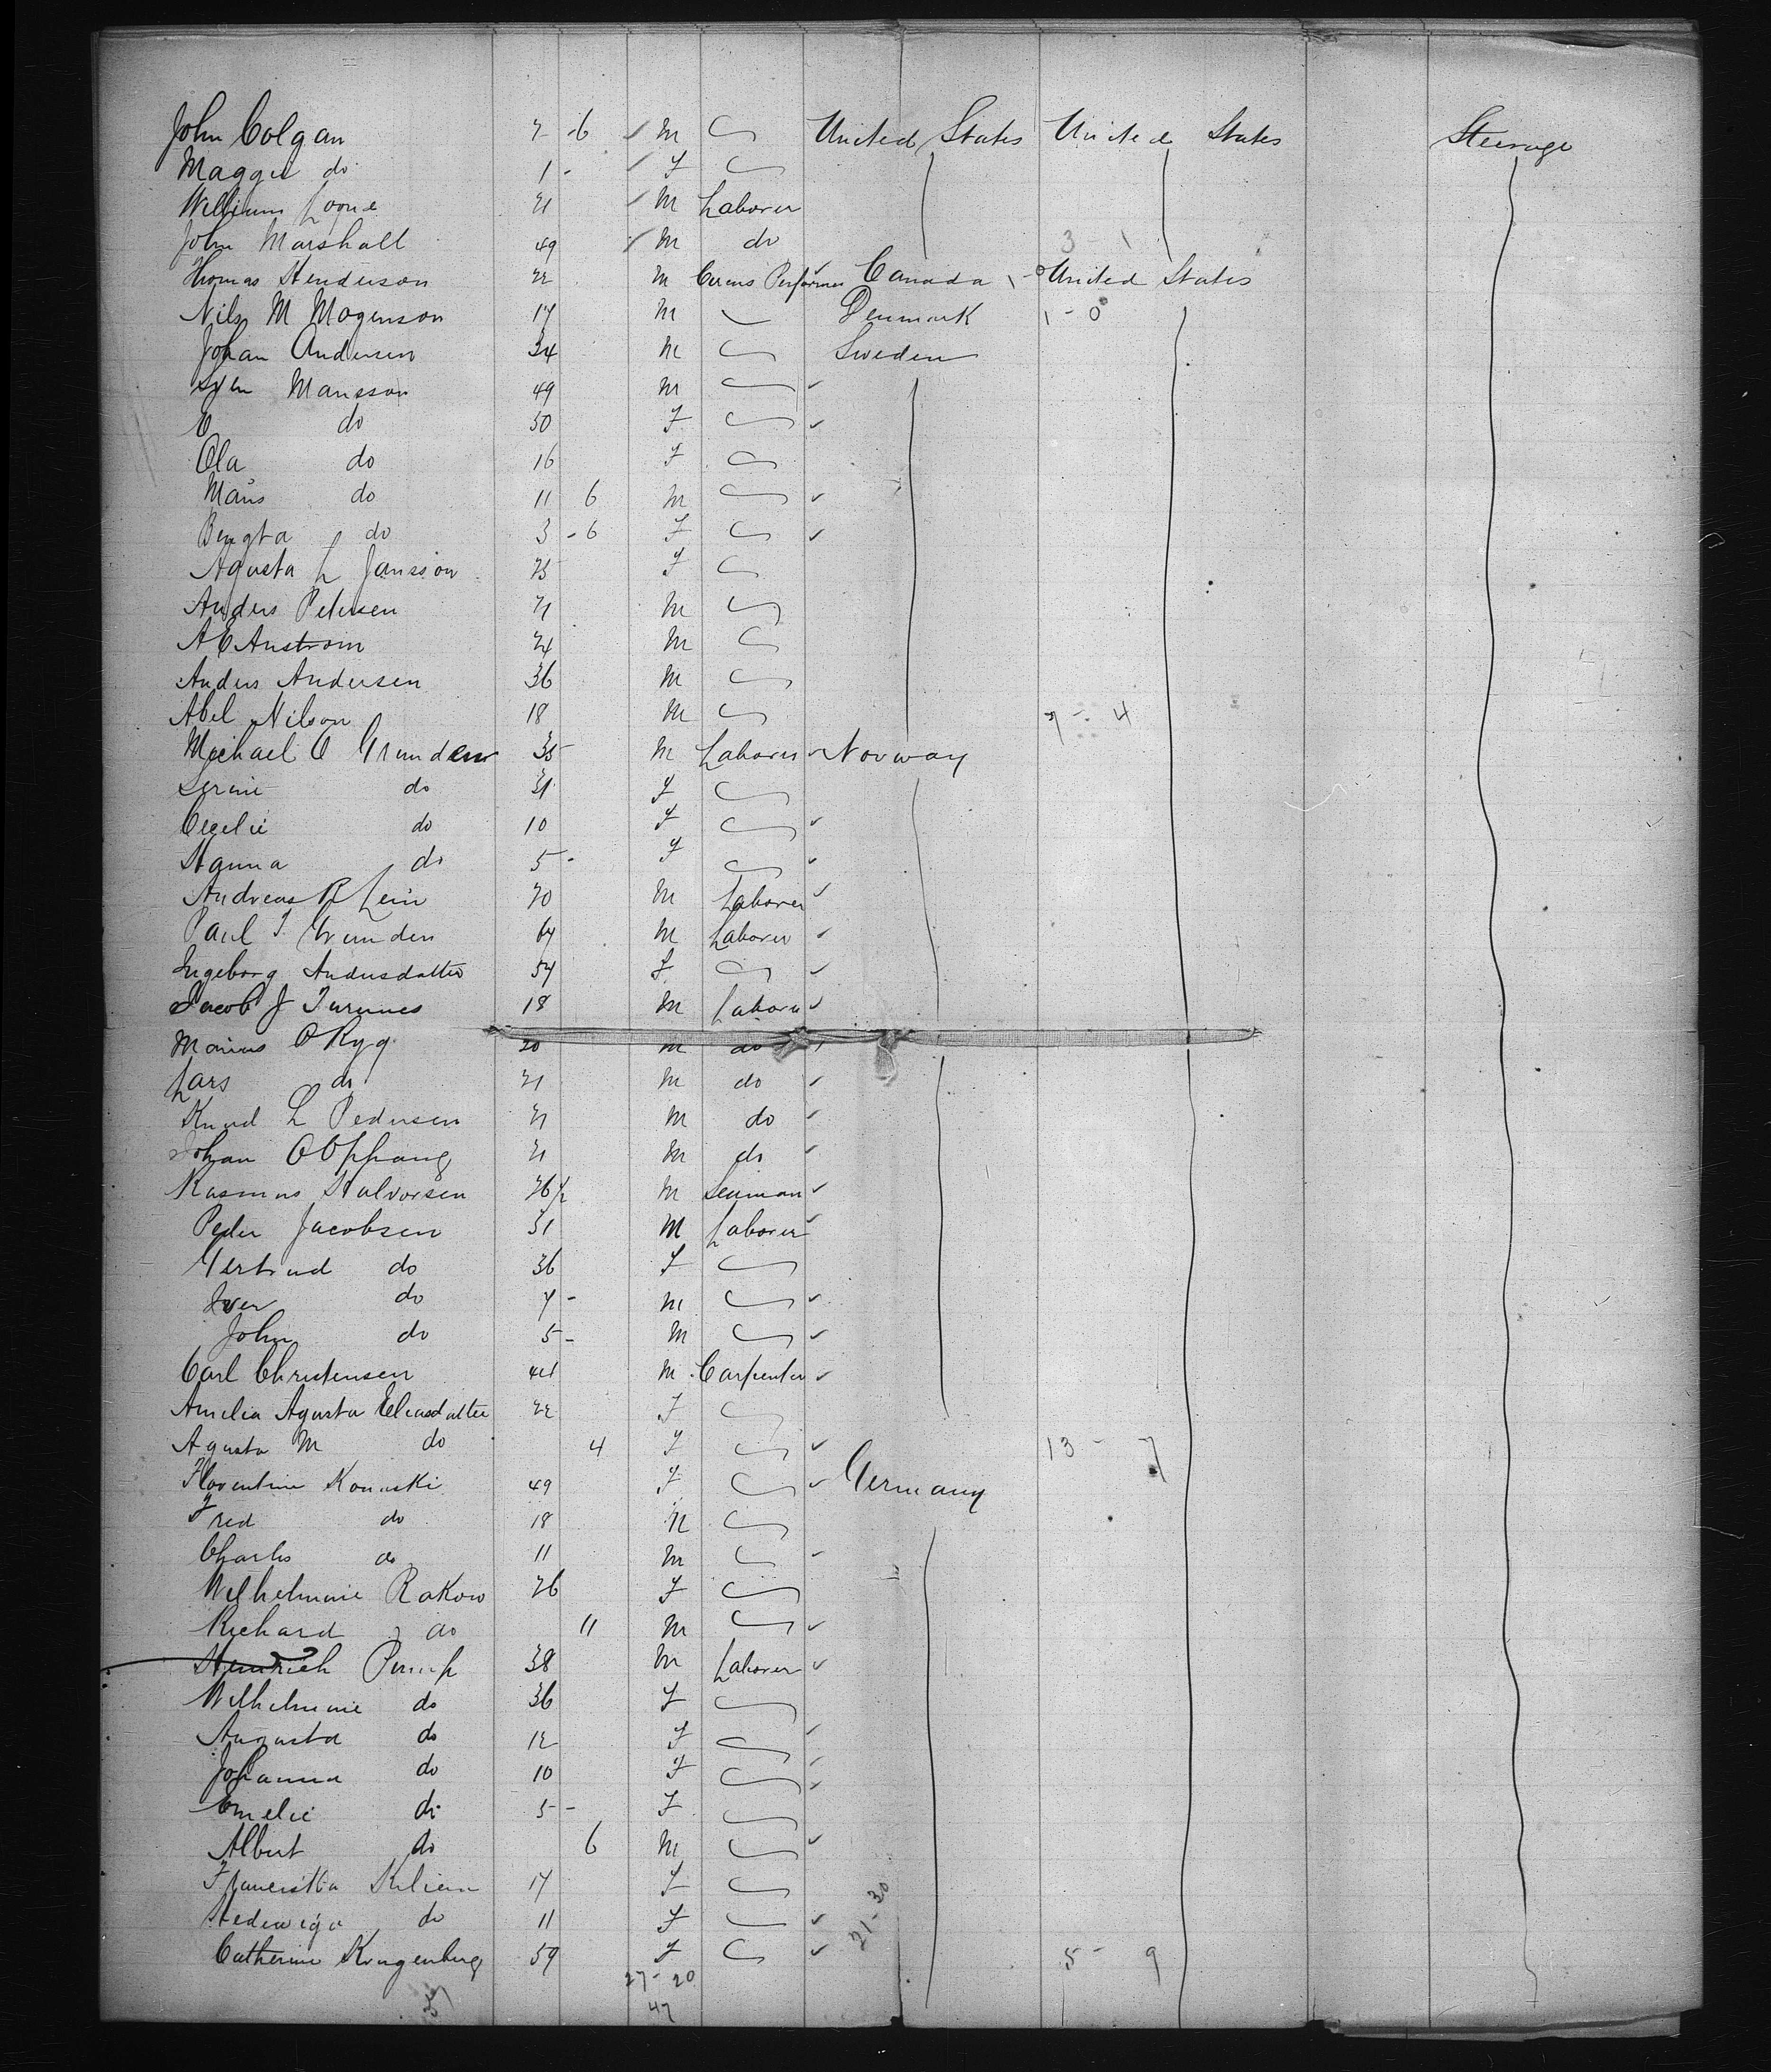 John Colgan 2 - 6 M United States United States Steerage
Maggie do 1 - F
William 21 M Laborer
John Marshall 49 M do 3 - 1
Thomas Henderson 22 M Circus Performer Canada 1 - 0 United States
Nils M Mogenson 17 M Denmark 1 - 0
Johan Andersen 34 M Sweden
Sven Mansson 49 M
E do 50 F
Ola do 16 F
Måns do 11 6 M
Bengta do 3 - 6 F
Agusta L Jansson 25 F
Anders Petersen 21 M
A E Anstrom 24 M
Anders Andersen 36 M
Abel Nilson 18 M 7 - 4
Michael O Grunden 35 M Laborer Norway
Serine do 31 F
Cecelie do 10 F
Hanna do 5 - F
Andreas R Lein 20 M Laborer
Paul T. Grunden 64 M Laborer
Ingeborg Andersdatter 57 F
Jacob J 18 M Laborer
Marius O Ryg 20 M do
Lars do 21 M do
Knud L Pedersen 21 M do
Johan O Ophaug 21 M do
Rasmus Halvorsen 26½ M Seaman
Peder Jacobsen 31 M Laborer
Gertrud do 36 F
Iver do 7 - M
John do 5 - M
Carl Christensen 44 M Carpenter
Amelia Agusta Eliasdatter 22 F
Agusta M do 4 F 13 - 7
Florentine Konaski 49 F Germany
Fred do 18 M
Charles do 11 M
Wilhelmine Rakow 26 F
Richard do 11 M
Heinrich Pump 38 M Laborer
Wilhelmine do 36 F
Augusta do 12 F
Johanna do 10 F
Emelie do 5 - F
Albert do 6 M
Franciska Kilian 17 F
Hedewiga do 11 F 21-30
Catherine Krugenberg 59 F 5 - 9
27 - 20
47